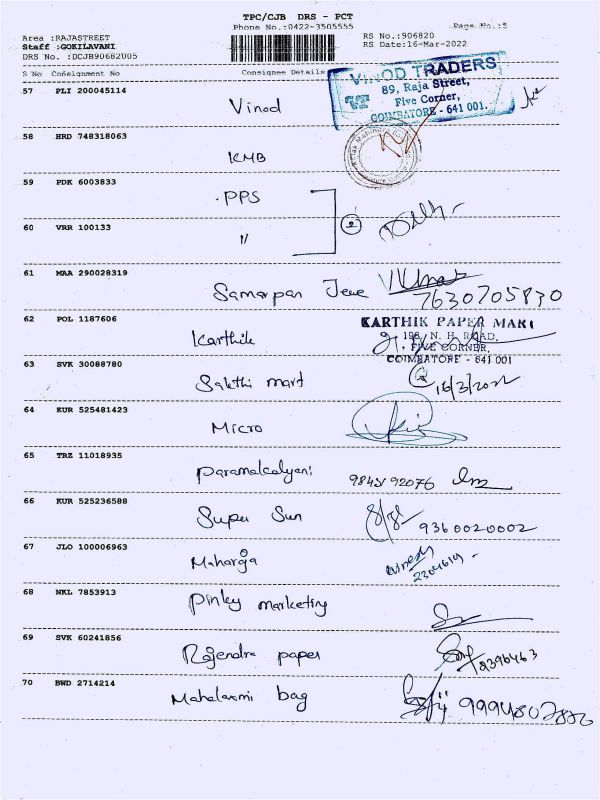 TPC/CJB DRS - PCT
Phone No.:0422-3505555
Page No.:5
Area :RAJASTREET
Staff :GOKILAVANI
DRS No. :DCJB90682005
RS No.:906820
RS Date:16-Mar-2022
S No Consignment No Consignee Details
57 PLI 200045114
Vinod
VINOD TRADERS
89, Raja Street,
Five Corner,
COIMBATORE - 641 001.
58 HRD 748318063
KMB
Kotak Mahindra
59 PDK 6003833
PPS
60 VRR 100133
"
61 MAA 290028319
Samarpan
7630705830
62 POL 1187606
Karthik
KARTHIK PAPER MART
198, N. H. ROAD,
FIVE CORNER,
COIMBATORE - 641 001
63 SVK 30088780
Sakthi mart
16/3/2022
64 KUR 525481423
Micro
65 TRZ 11018935
Paramalcalyani
9843192076
66 KUR 525236588
Super Sun
9360020002
67 JLO 100006963
Maharaja
68 NKL 7853913
Pinky marketing
69 SVK 60241856
Rajendra paper
70 BWD 2714214
Mahalaxmi bag